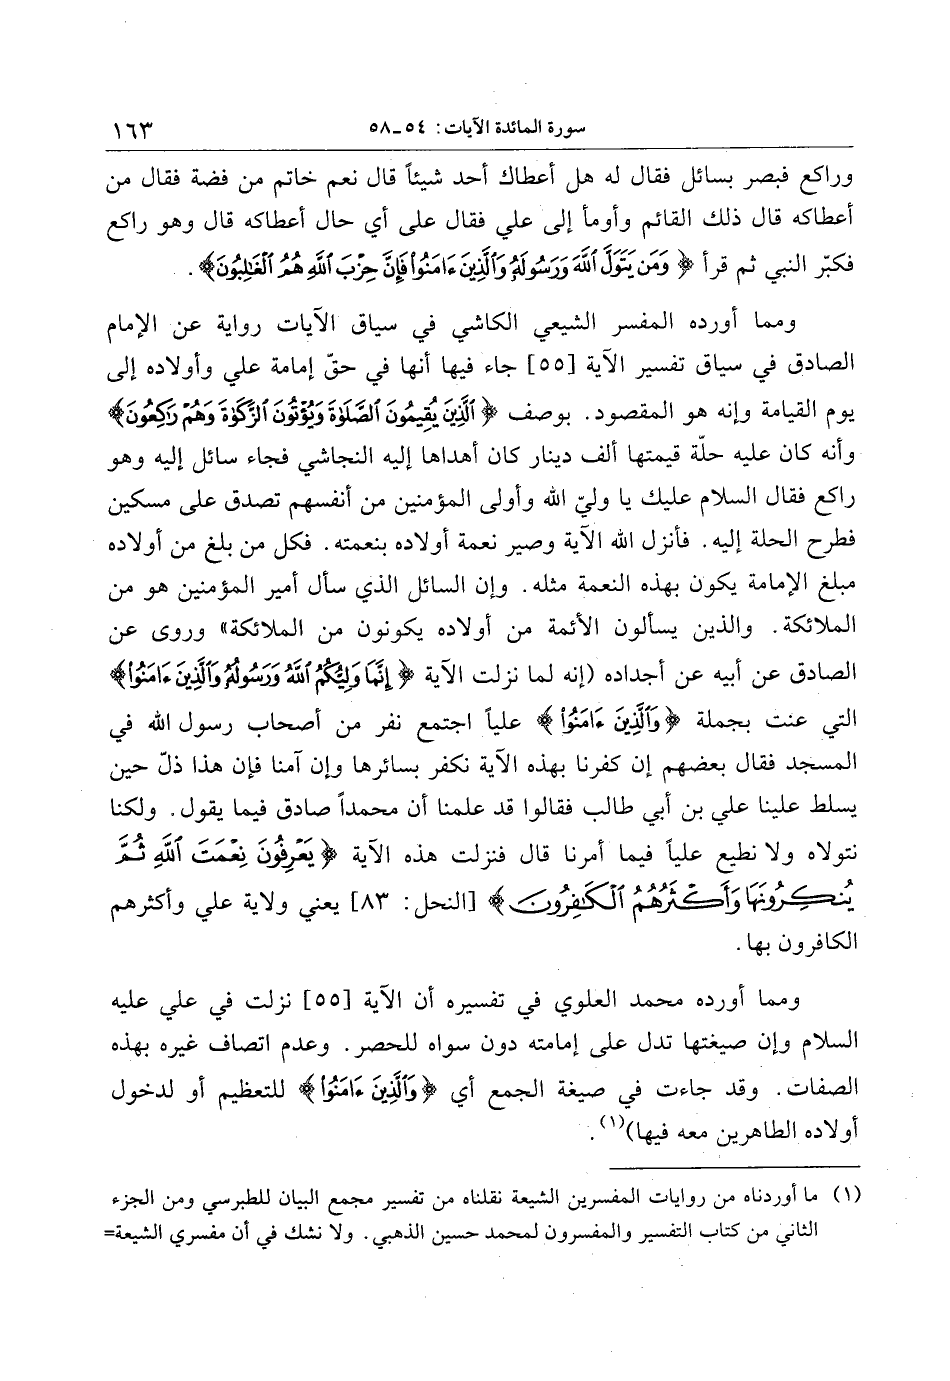 سورة المائدة الآيات: ٥٤ـ٥٨ ١٦٣
وراكع فبصر بسائل فقال له هل أعطاك أحد شيئاً قال نعم خاتم من فضة فقال من
أعطاكه قال ذلك القائم وأومأ إلى علي فقال على أي حال أعطاكه قال وهو راكع
فكبّر النبي ثم قرأ ﴿وَمَن يَتَوَلَّ ٱللَّهَ وَرَسُولَهُۥ وَٱلَّذِينَ ءَامَنُوا۟ فَإِنَّ حِزْبَ ٱللَّهِ هُمُ ٱلْغَـٰلِبُونَ﴾.
ومما أورده المفسر الشيعي الكاشي في سياق الآيات رواية عن الإمام
الصادق في سياق تفسير الآية [٥٥] جاء فيها أنها في حقّ إمامة علي وأولاده إلى
يوم القيامة وإنه هو المقصود. بوصف ﴿ٱلَّذِينَ يُقِيمُونَ ٱلصَّلَوٰةَ وَيُؤْتُونَ ٱلزَّكَوٰةَ وَهُمْ رَٰكِعُونَ﴾
وأنه كان عليه حلّة قيمتها ألف دينار كان أهداها إليه النجاشي فجاء سائل إليه وهو
راكع فقال السلام عليك يا وليّ الله وأولى المؤمنين من أنفسهم تصدق على مسكين
فطرح الحلة إليه. فأنزل الله الآية وصير نعمة أولاده بنعمته. فكل من بلغ من أولاده
مبلغ الإمامة يكون بهذه النعمة مثله. وإن السائل الذي سأل أمير المؤمنين هو من
الملائكة. والذين يسألون الأئمة من أولاده يكونون من الملائكة» وروى عن
الصادق عن أبيه عن أجداده (إنه لما نزلت الآية ﴿إِنَّمَا وَلِيُّكُمُ ٱللَّهُ وَرَسُولُهُۥ وَٱلَّذِينَ ءَامَنُوا۟﴾
التي عنت بجملة ﴿وَٱلَّذِينَ ءَامَنُوا۟﴾ علياً اجتمع نفر من أصحاب رسول الله في
المسجد فقال بعضهم إن كفرنا بهذه الآية نكفر بسائرها وإن آمنا فإن هذا ذلّ حين
يسلط علينا علي بن أبي طالب فقالوا قد علمنا أن محمداً صادق فيما يقول. ولكنا
نتولاه ولا نطيع علياً فيما أمرنا قال فنزلت هذه الآية ﴿يَعْرِفُونَ نِعْمَتَ ٱللَّهِ ثُمَّ
يُنكِرُونَهَا وَأَكْثَرُهُمُ ٱلْكَـٰفِرُونَ﴾ [النحل: ٨٣] يعني ولاية علي وأكثرهم
الكافرون بها.
ومما أورده محمد العلوي في تفسيره أن الآية [٥٥] نزلت في علي عليه
السلام وإن صيغتها تدل على إمامته دون سواه للحصر. وعدم اتصاف غيره بهذه
الصفات. وقد جاءت في صيغة الجمع أي ﴿وَٱلَّذِينَ ءَامَنُوا۟﴾ للتعظيم أو لدخول
أولاده الطاهرين معه فيها)(١).
(١) ما أوردناه من روايات المفسرين الشيعة نقلناه من تفسير مجمع البيان للطبرسي ومن الجزء
الثاني من كتاب التفسير والمفسرون لمحمد حسين الذهبي. ولا نشك في أن مفسري الشيعة=